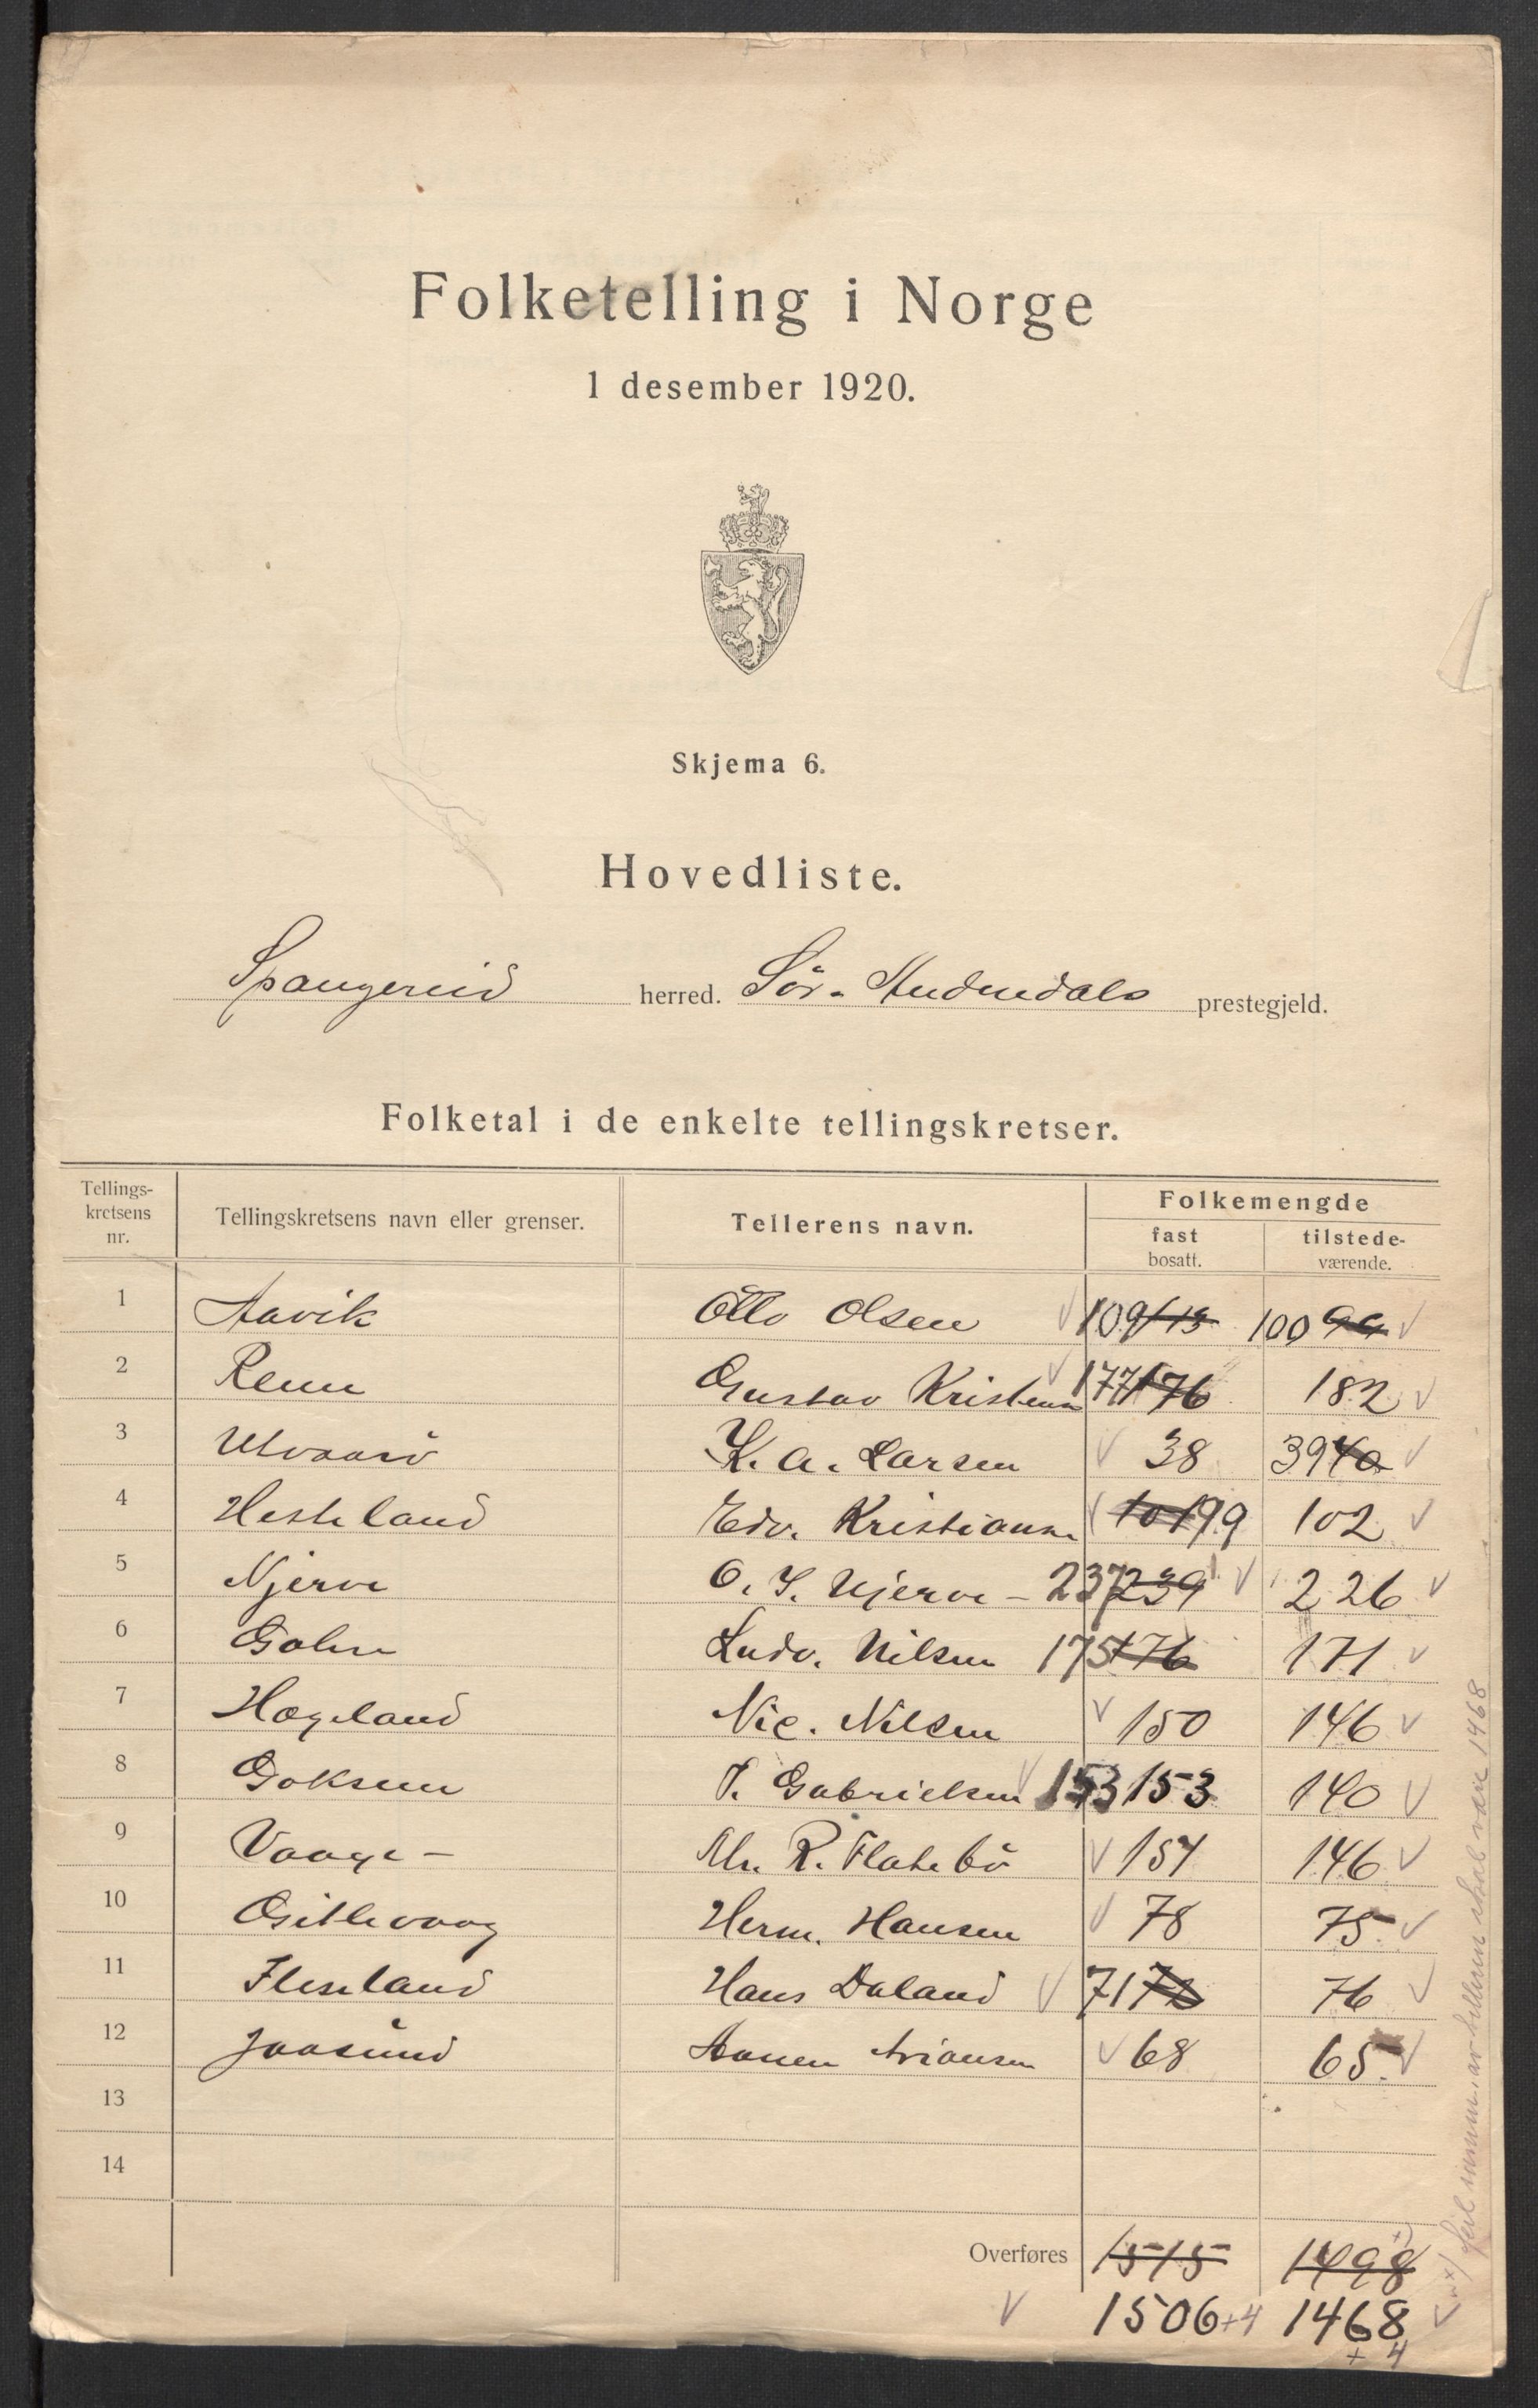 Folketelling i Norge
1 desember 1920.
Skjema 6.
Hovedliste.
Spangereid herred. Sör-Audnedals prestegjeld.
Folketal i de enkelte tellingskretser.
Tellings-
kretsens
nr.
Tellingskretsens navn eller grenser.
Tellerens navn.
Folkemengde
fast
bosatt.
tilstede-
værende.
1 Aavik Otto Olsen 109 113 100 99
2 Reme Gustav Kristensen 177 176 182
3 Utvaarö K. A. Larsen 38 39 40
4 Hesteland Edv. Kristiansen 101 99 102
5 Njerve O. S. Njerve - 237 239 226
6 Gahre Ludv. Nilsen 175 176 171
7 Hægeland Nic. Nilsen 150 146
8 Goksem T. Gabrielsen 153 153 140
9 Vaage - M. R. Flatebö 151 146
10 Gitlevaag Herm. Hansen 78 75
11 Fleseland Hans Daland 71 76
12 Jaasund Aanen Ariansen 68 65
13
14
Overføres 1515 1498 x)
1506 +4 1468
+ 4
x) feil summ. av telleren skal være 1468